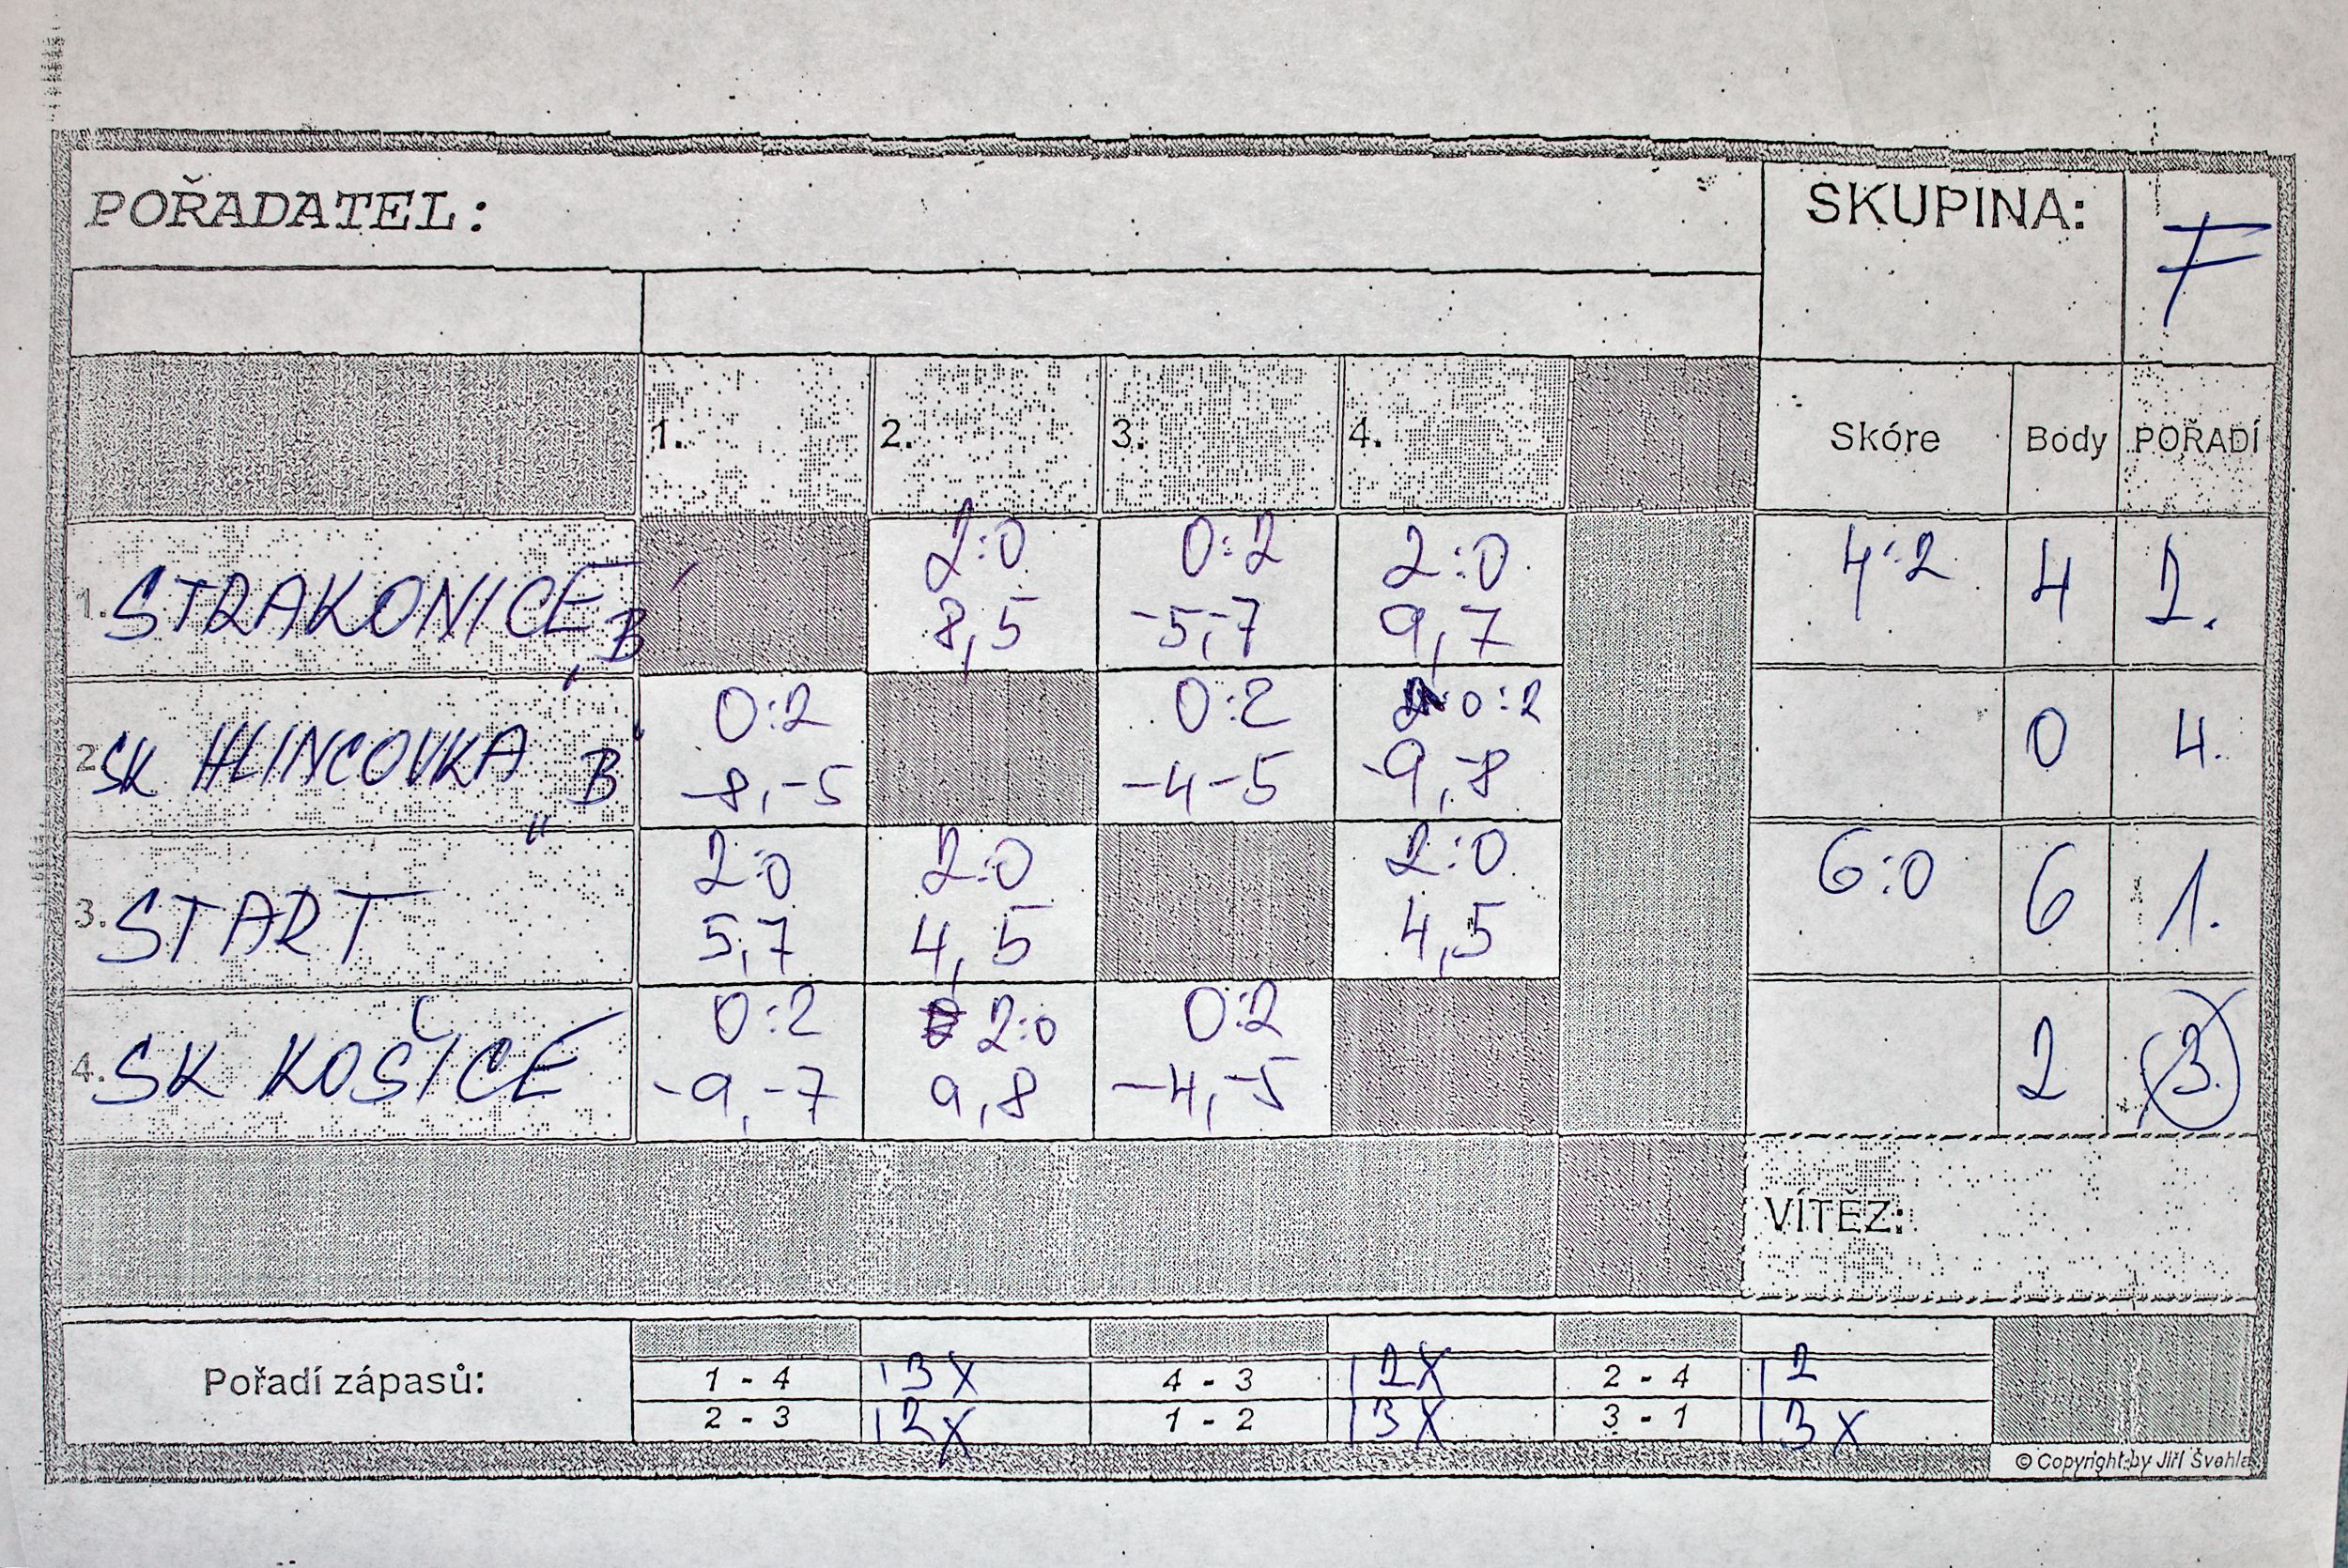 POŘADATEL:
SKUPINA: F
1. 2. 3. 4. Skóre Body POŘADÍ
1. STRAKONICE „B“ 2:0 0:2 2:0 4:2 4 2.
8,5 -5,-7 9,7
2. SK HLINCOVKA „B“ 0:2 0:2 0:2 0 4.
-8,-5 -4-5 -9,-8
3. START 2:0 2:0 2:0 6:0 6 1.
5,7 4,5 4,5
4. SK KOŠICE 0:2 2:0 0:2 2 3.
-9,-7 9,8 -4,-5
VÍTĚZ:
Pořadí zápasů:
1 - 4 13X 4 - 3 12X 2 - 4 12
2 - 3 12X 1 - 2 13X 3 - 1 13X
© Copyright by Jiří Švehla